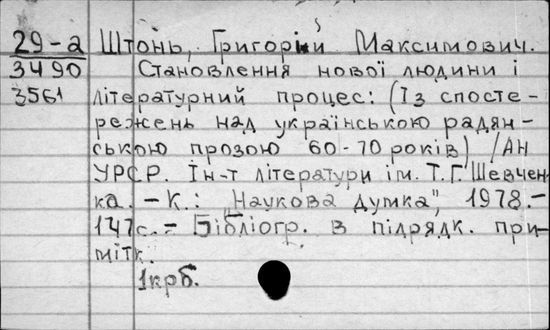 29-а Штонь, Григорій Максимович.
3490 Становлення нової людини і
3561 літературний процес: (Із спосте-
режень над українською радян-
ською прозою 60-70 років) /АН
УРСР. Ін-т літератури ім. Т.Г. Шевчен
ка. – К.: „Наукова думка", 1978.–
147с.– Бібліогр. в підрядк. при-
мітк.
1крб.